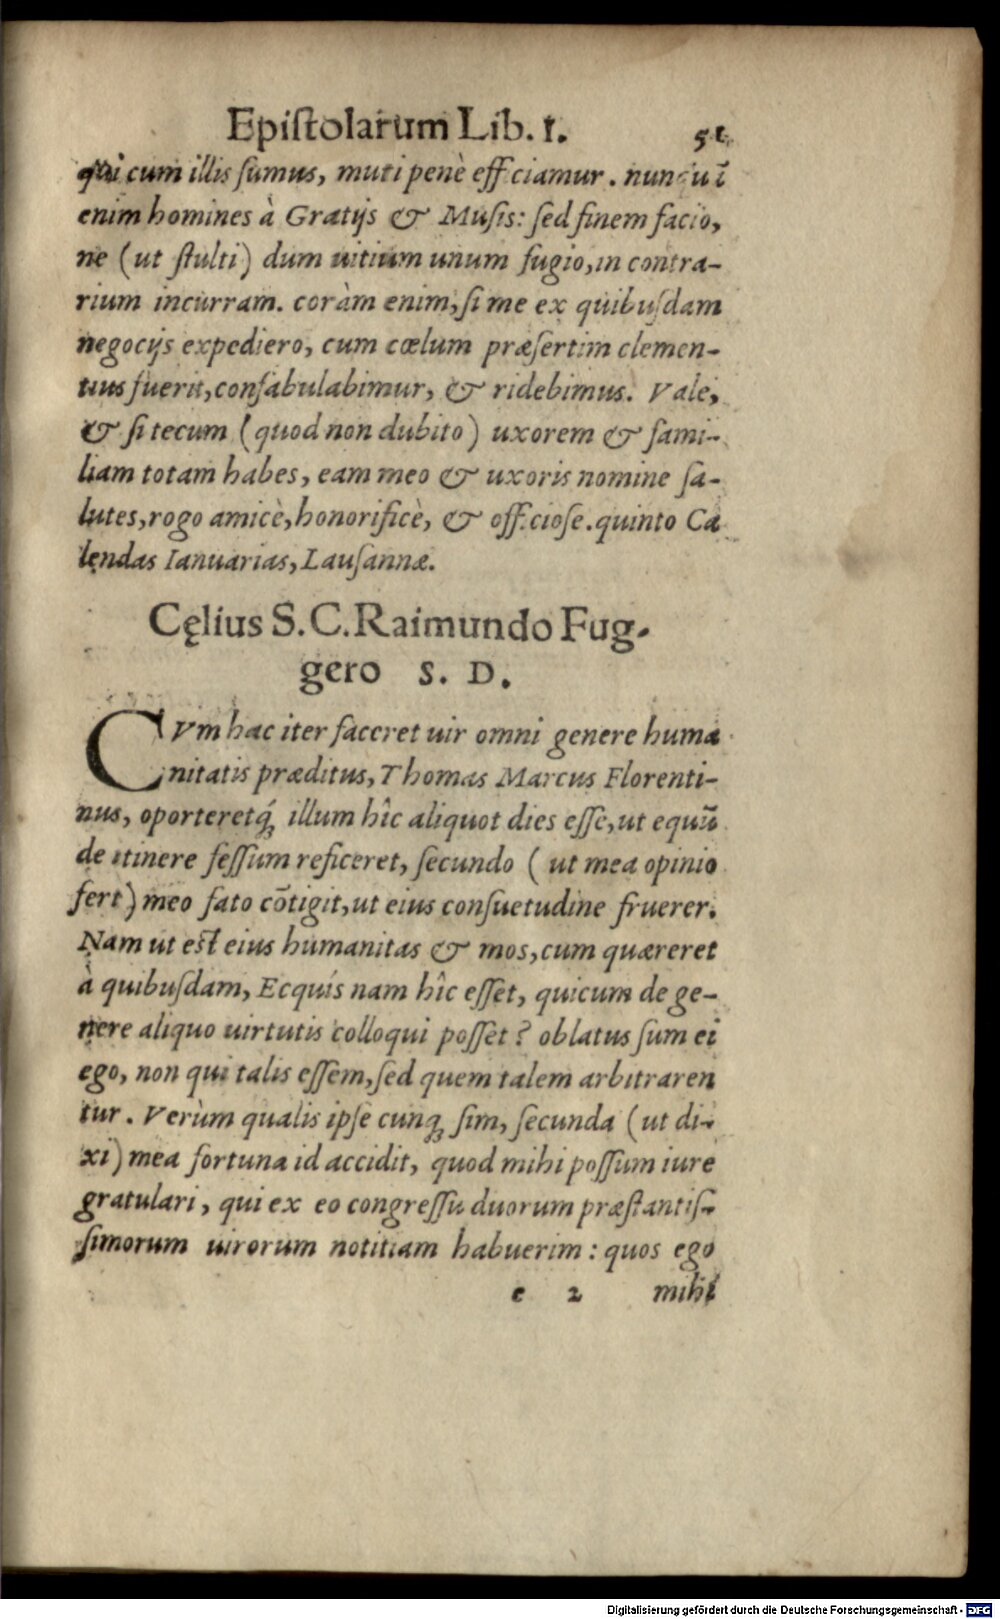 Epistolarum Lib. I. 51
qui cum illis sumus, muti penè efficiamur.
enim homines à Gratijs & Musis: sed finem facio,
ne (ut stulti) dum uitium unum fugio, in contra-
rium incurram. coràm enim, si me ex quibusdam
negocijs expediero, cum cœlum præsertim clemen-
tius fuerit, confabulabimur, & ridebimus. Vale,
& si tecum (quod non dubito) uxorem & fami-
liam totam habes, eam meo & uxoris nomine sa-
lutes, rogo amicè, honorificè, & officiose. quinto Ca
lendas Ianuarias, Lausannæ.
Cęlius S. C. Raimundo Fug-
gero S. D.
CVm hac iter faceret uir omni genere huma
nitatis præditus, Thomas Marcus Florenti-
nus, oporteretq́; illum hîc aliquot dies esse, ut equū
de itinere fessum reficeret, secundo (ut mea opinio
fert) meo fato cōtigit, ut eius consuetudine fruerer.
Nam ut est eius humanitas & mos, cum quæreret
à quibusdam, Ecquís nam hîc esset, quicum de ge-
nere aliquo uirtutis colloqui posset? oblatus sum ei
ego, non qui talis essem, sed quem talem arbitraren
tur. Verùm qualis ipse cunq; sim, secunda (ut di-
xi) mea fortuna id accidit, quod mihi possum iure
gratulari, qui ex eo congressu duorum præstantis-
simorum uirorum notitiam habuerim: quos ego
e 2 mihi
Digitalisierung gefördert durch die Deutsche Forschungsgemeinschaft - DFG